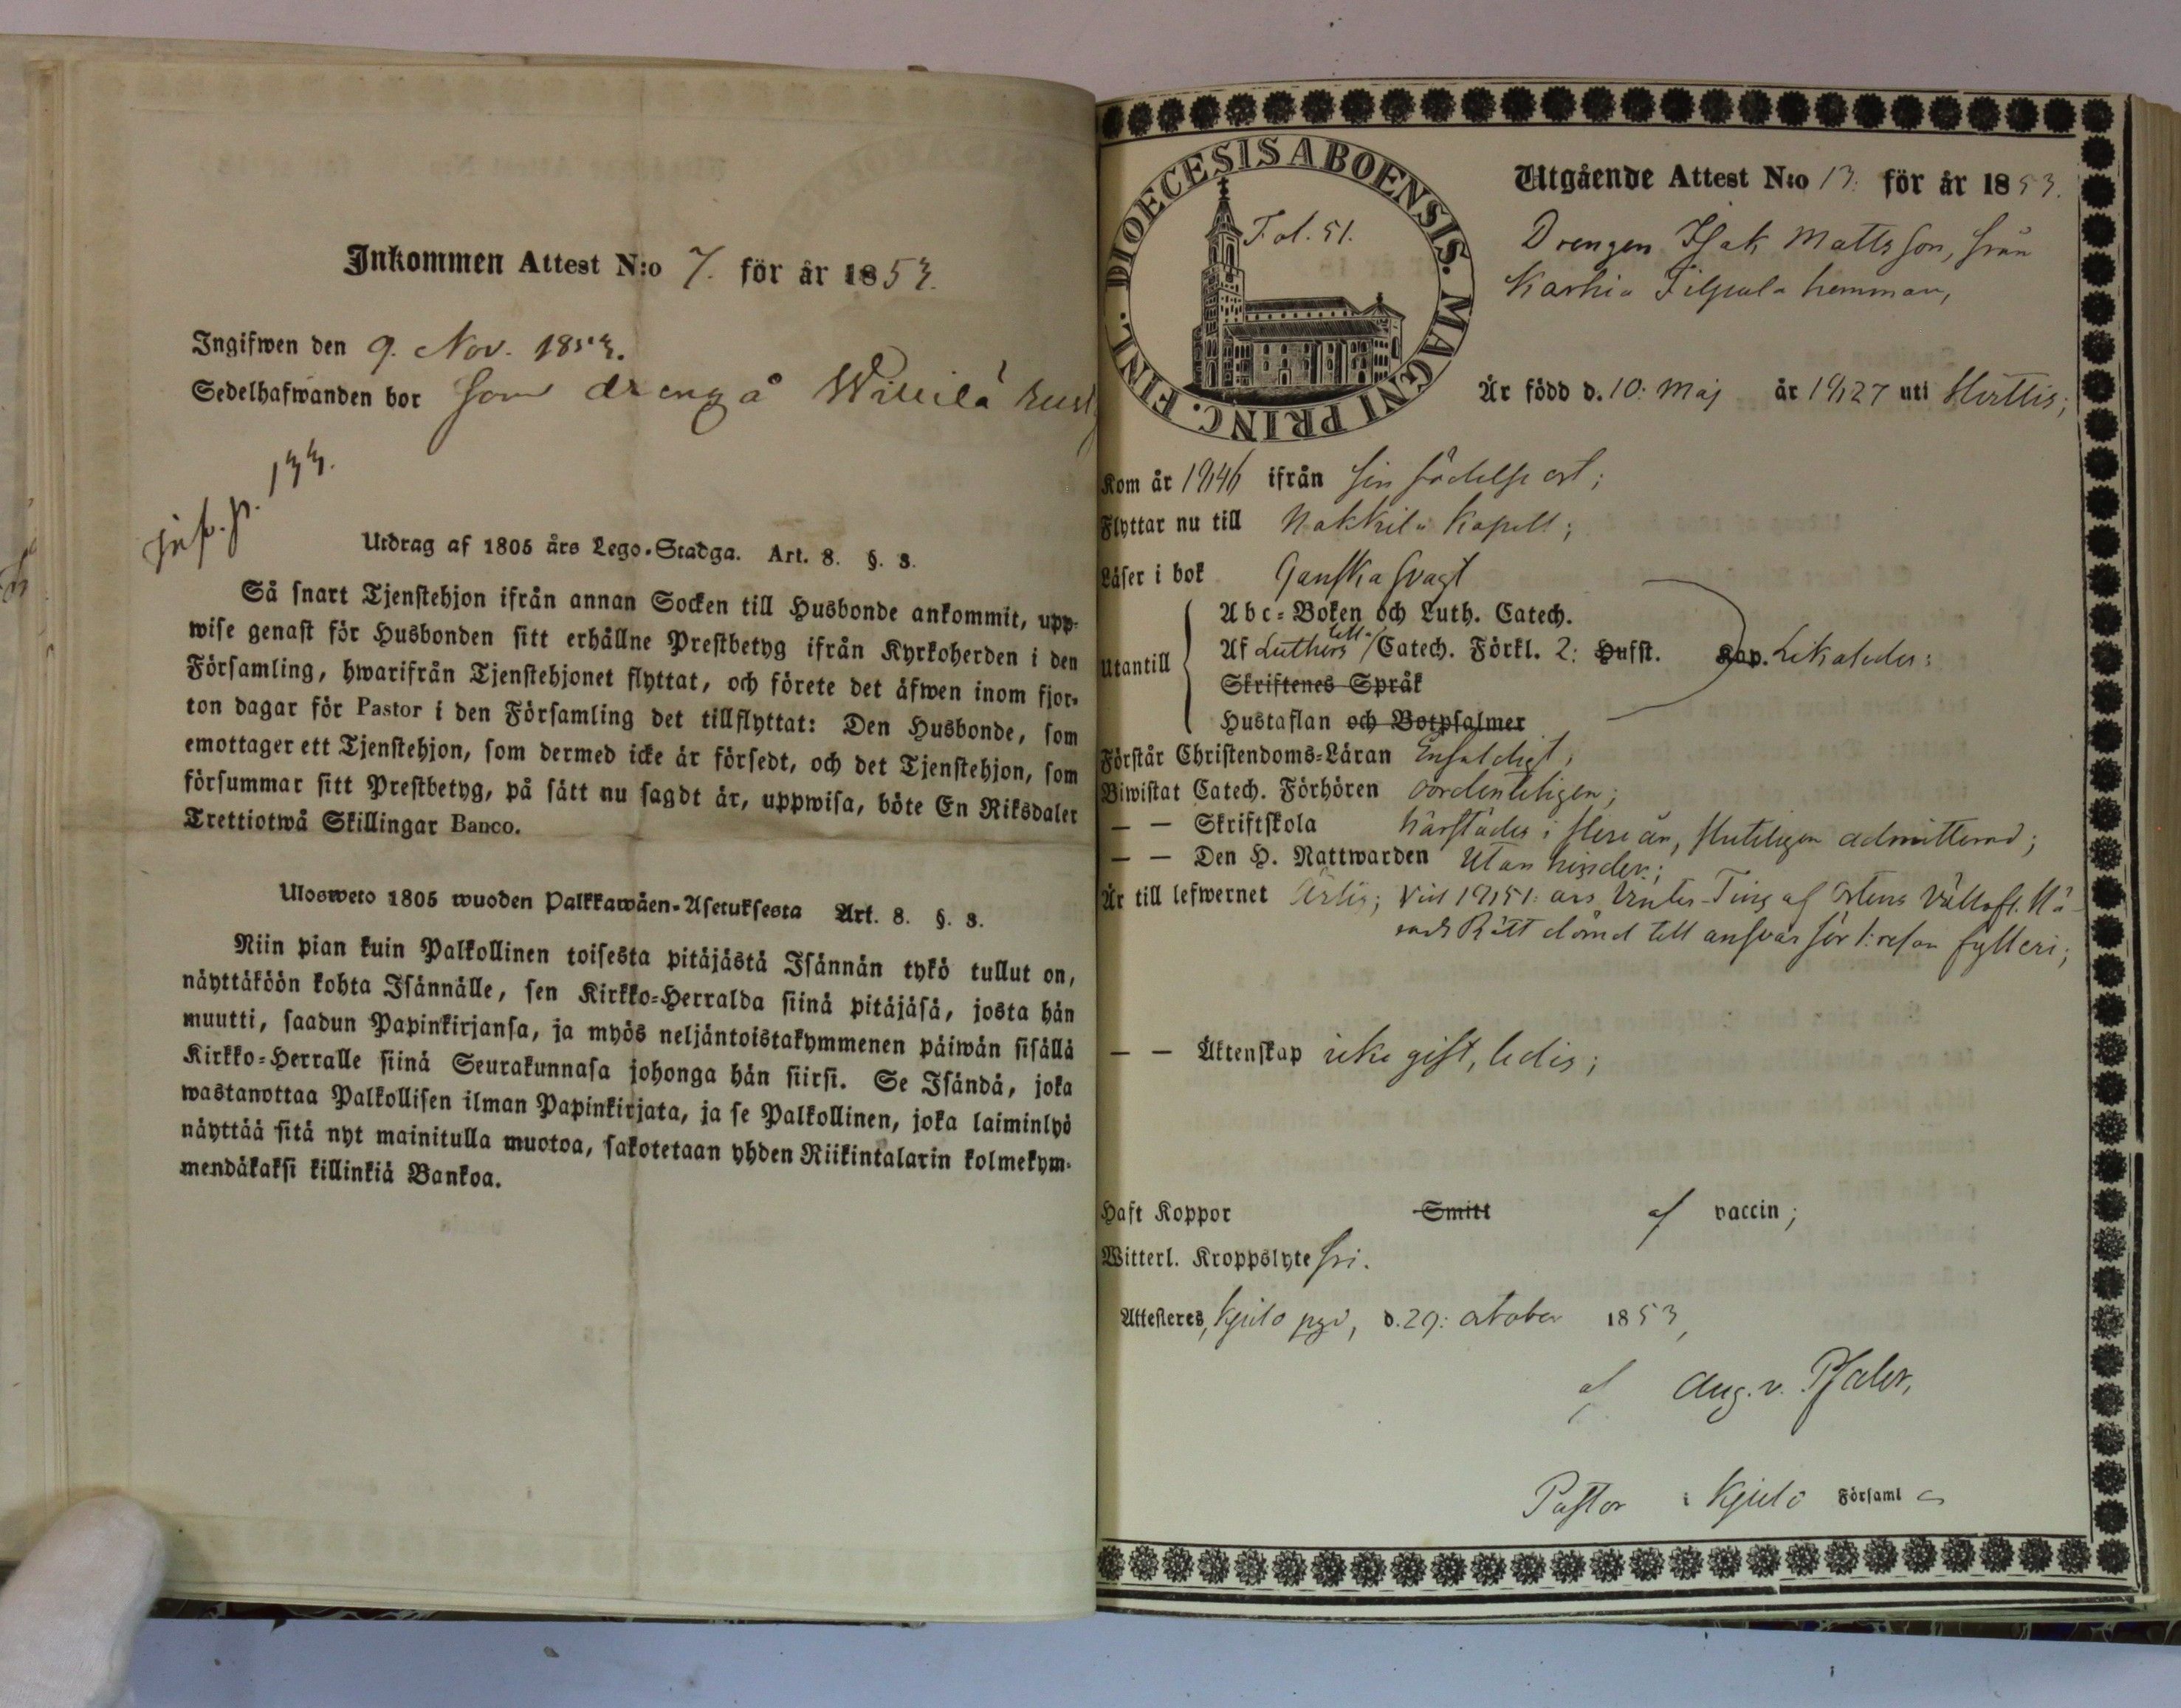 Inkommen Attest N:o 7. för år 1853.
Ingifwen den 9. Nov. 1853.
Sedelhafwanden bor som dreng å
inf. p. 133.
Utdrag af 1805 års Lego-Stadga. Art. 8. §. 3.
Så snart Tjenstehjon ifrån annan Socken till Husbonde ankommit, upp-
wise genast för Husbonden sitt erhållne Prestbetyg ifrån Kyrkoherden i den
Församling, hwarifrån Tjenstehjonet flyttat, och förete det äfwen inom fjor-
ton dagar för Pastor i den Församling det tillflyttat: Den Husbonde, som
emottager ett Tjenstehjon, som dermed icke är försedt, och det Tjenstehjon, som
försummar sitt Prestbetyg, på sätt nu sagdt är, uppwisa, böte En Riksdaler
Trettiotwå Skillingar Banco.
Ulosweto 1805 wuoden Palkkawäen-Asetuksesta Art. 8. §. 3.
Niin pian kuin Palkollinen toisesta pitäjästä Isännän tykö tullut on,
näyttäköön kohta Isännälle, sen Kirkko-Herralda siinä pitäjäsä, josta hän
muutti, saadun Papinkirjansa, ja myös neljäntoistakymmenen päiwän sisällä
Kirkko-Herralle siinä Seurakunnasa johonga hän siirsi. Se Isändä, joka
wastanottaa Palkollisen ilman Papinkirjata, ja se Palkollinen, joka laiminlyö
näyttää sitä nyt mainitulla muotoa, sakotetaan yhden Riikintalarin kolmekym-
mendäkaksi killinkiä Bankoa.
DIOECESIS ABOENSIS. MAGNI PRINC. FINL.
Fol. 51.
Utgående Attest N:o 13. för år 1853.
Drengen Isak Mattsson, från
Karhia Filpula hemman,
Är född d. 10: Maj år 1827 uti Hvittis;
Kom år 1846 ifrån sin födelse ort;
Flyttar nu till Nakkila Kapell;
Läser i bok Ganska svagt
Utantill
Abc-Boken och Luth. Catech.
Af Luthers lilla Catech. Förkl. 2: Hufst. Kap. Likaledes;
Skriftenes Språk
Hustaflan och Botpsalmer
Förstår Christendoms-Läran Enfaldigt;
Biwistat Catech. Förhören oordenteligen;
— — Skriftskola härstädes i flere år, slutligen admitterad;
— — Den H. Nattwarden Utan hinder;
Är till lefwernet Ärlig; Vid 1851: års Vinter-Ting af Ortens Vällofl. Hä-
rads Rätt dömd till ansvar för 1: resan fylleri;
— — Äktenskap icke gift, ledig;
Haft Koppor Smitt af vaccin;
Witterl. Kroppslyte fri.
Attesteres, Kjulo pgd, d. 29: October 1853,
af Aug. v. Pfaler,
Pastor i Kjulo Församl